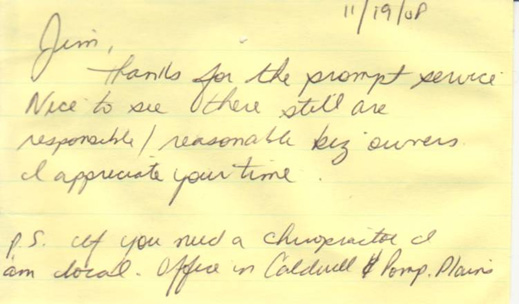 11/19/08
Jim,
Thanks for the prompt service
Nice to see there still are
responsible/reasonable biz owners.
I appreciate your time.
P.S. If you need a chiropractor I
am local. Office in Caldwell & Pomp. Plains